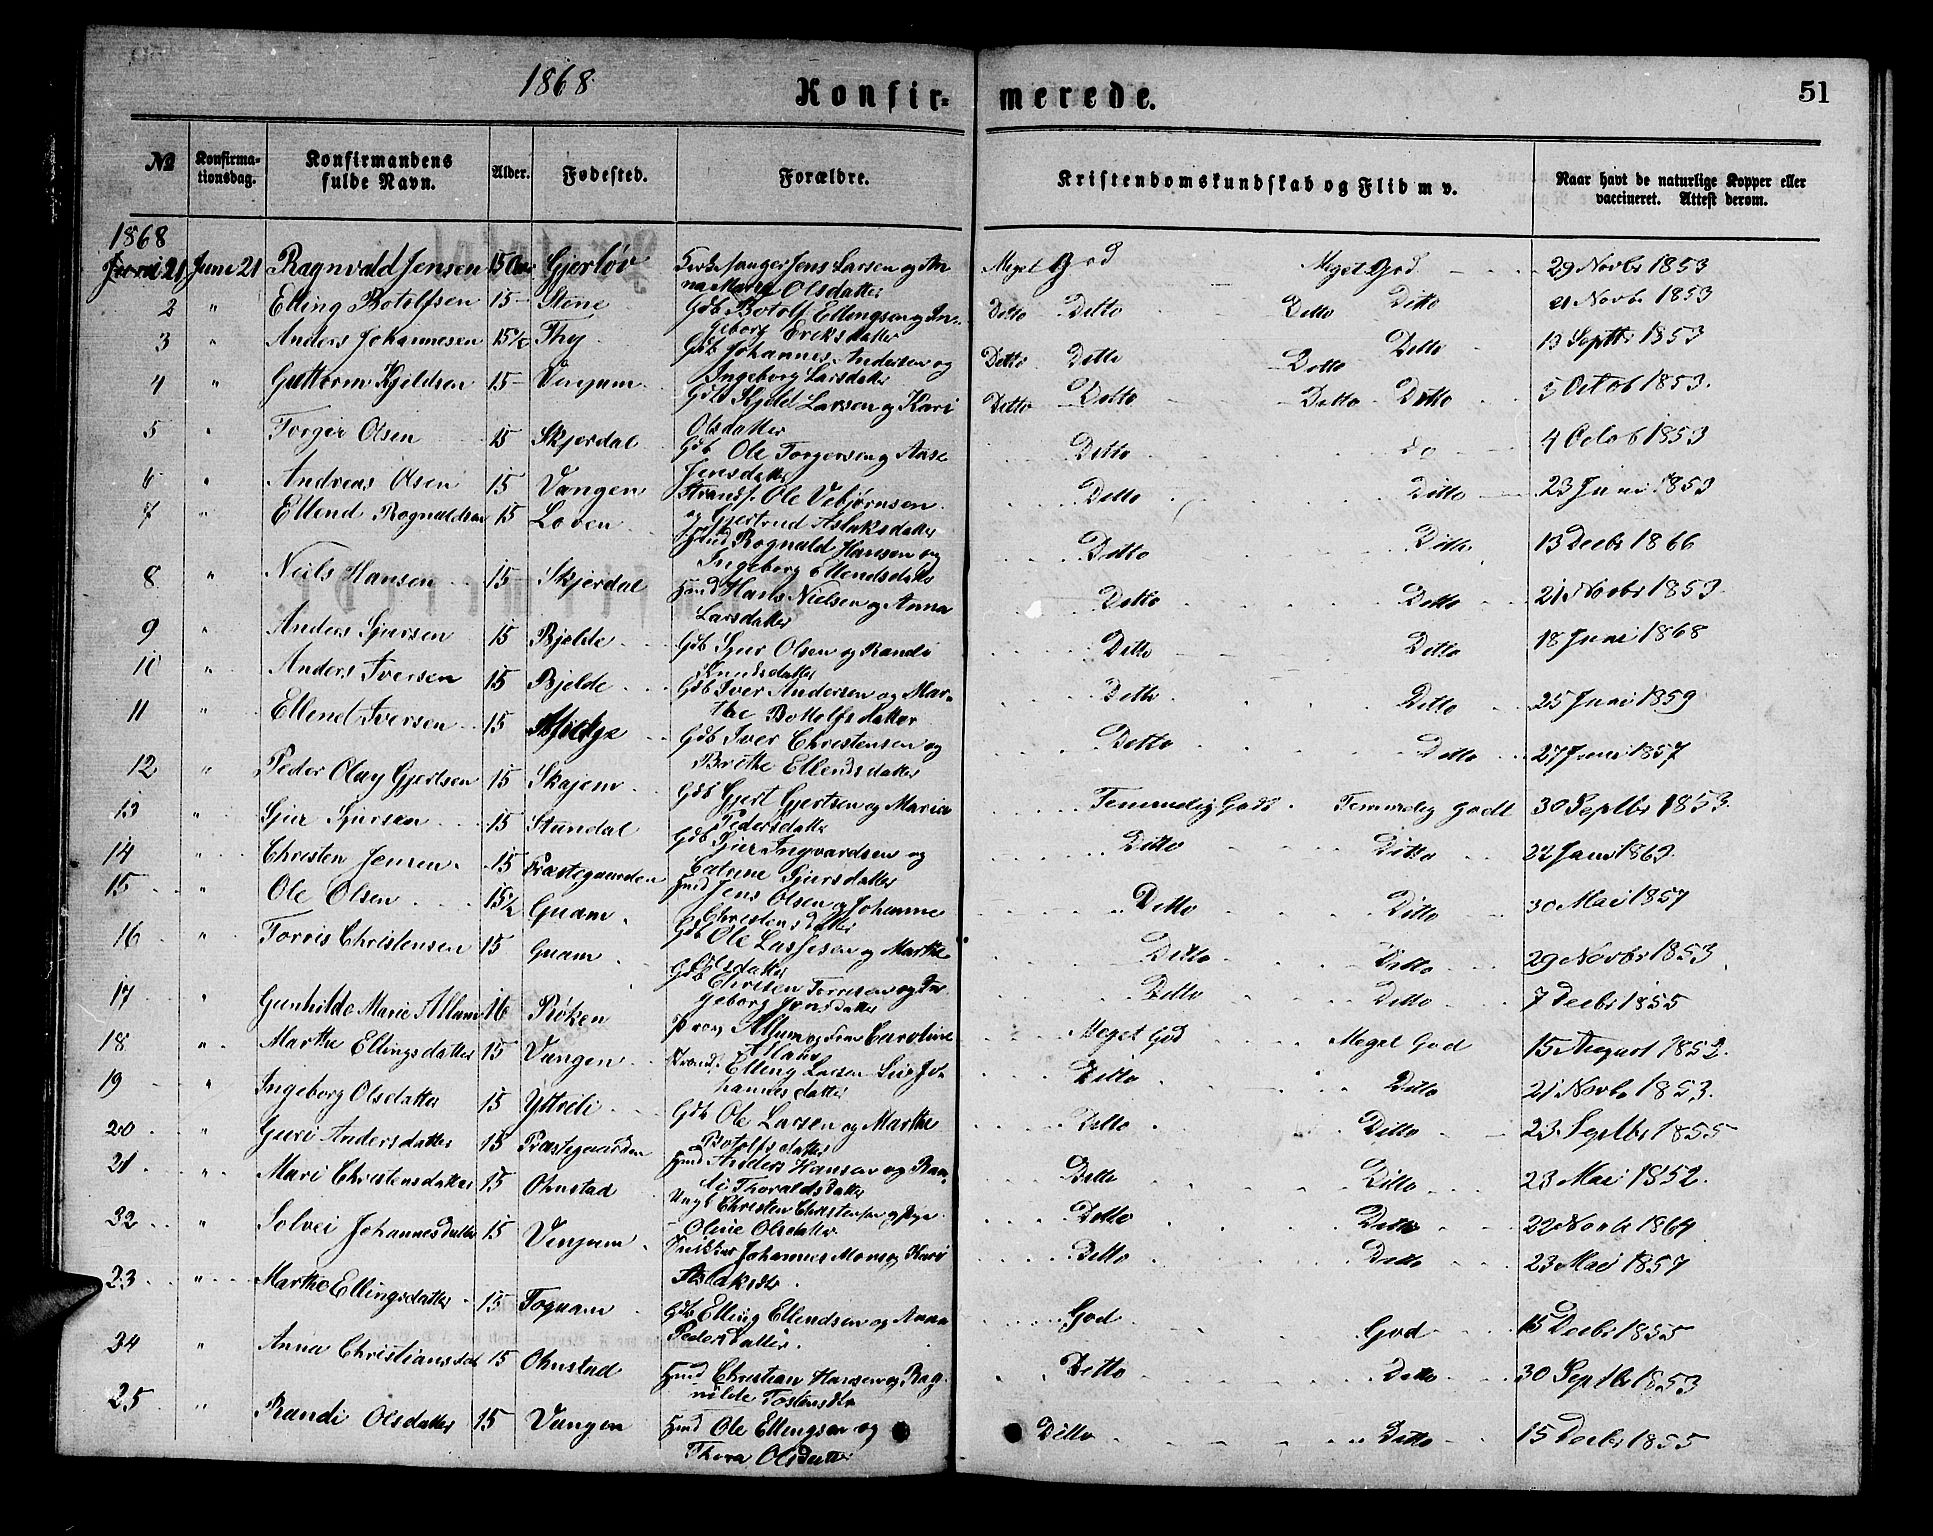 1868
Konfir- merede.
51
№ Konfirmationsdag. Konfirmandens fulde Navn. Alder. Fødested. Forældre. Kristendomskundskab og Flid m v. Naar havt de naturlige Kopper eller vaccineret. Attest derom.
1868
Juni 21 Ragnvald Jensen 15 Gjerløv Kirkesanger Jens Larsen og An- Meget God Meget God 29 Novbr 1853
na Marga Olsdatter
2 " Elling Botolfsen 15 Stene Gdb Botolf Ellingsen og In- Ditto Ditto Ditto Ditto 21 Novbr 1853
geborg Eriksdatter
3 " Anders Johannesen 15½ Thy Gdb Johannes Andersen og Ditto Ditto Ditto Ditto 13 Septbr 1853
Ingeborg Larsdatter
4 " Guttorm Kjeldsen 15 Vinjum Gdb Kjeld Larsen og Kari Ditto Ditto Ditto Ditto 5 Octob 1853.
Olsdatter
5 " Torger Olsen 15 Skjerdal Gdb Ole Torgersen og Aase Ditto do 4 Octob 1853
Jensdatter
6 " Andreas Olsen 15 Vangen Strands. Ole Vebjørnsen Ditto Ditto 23 Juni 1853
og Gjertrud Aslaksdatter
7 " Ellend Rognaldsen 15 Loven Hmd Rognald Hansen og Ditto Ditto 13 Decbr 1866
Ingeborg Ellendsdatt
8 " Niels Hansen 15 Skjerdal Hmd Hans Nielsen og Anna Ditto Ditto 21 Novbr 1853
Larsdatter
9 " Anders Sjursen 15 Bjelde Gdb Sjur Olsen og Randi Ditto Ditto 18 Juni 1868
Knudsdatter
10 " Anders Iversen 15 Bjelde Gdb Iver Andersen og Mar- Ditto Ditto 25 Juni 1859
the Bottolfsdatter
11 " Ellend Iversen 15 Gdb Iver Christensen og Ditto Ditto 27 Juni 1857
Brithe Ellendsdatter
12 " Peder Olay Gjertsen 15 Skajem Gdb Gjert Gjertsen og Maria Temmelig Godt. Temmelig godt 30 Septbr 1853
Pedersdatter
13 " Sjur Sjursen 15 Stundal Gdb Sjur Ingvardsen og Ditto Ditto 22 Juni 1863.
Catrine Sjursdatter
14 " Christen Jensen 15 Præstegaarden Hmd Jens Olsen og Johanne Ditto Ditto 30 Mai 1857
Christensdatter
15 " Ole Olsen 15½ Gnam Gdb Ole Lassesen og Marthe Ditto Ditto 29 Novbr 1853
Olsdatter
16 " Torris Christensen 15 Gnam Gdb Christen Torrisen og In- Ditto Ditto 7 Decbr 1855
geborg Jonsdatter
17 " Gunhilde Marie Allum 16 Røken Allum og Caroline Meget God Meget God 15 August 1852.
Allum
18 " Marthe Ellingsdatter 15 Vangen Strands. Elling Larsen Siri Jo- Ditto Ditto 21 Novbr 1853.
hannesdatter
19 " Ingeborg Olsdatter 15 Ytreli Gdb Ole Larsen og Marthe Ditto Ditto 23 Septbr 1855
Botolfsdatter
20 " Guri Andersdatter 15 Præstegaarden Hmd Anders Hansen og Ran- Ditto Ditto 23 Mai 1852.
di Thoraldsdatter
21 " Mari Christensdatter 15 Ohnstad Ungk Christen Christensen og Pige Ditto Ditto 22 Novbr 1864
Oline Olsdatter
22 " Solvei Johannesdatter 15 Vinjum Snikker Johannes Mons og Kari Ditto Ditto 23 Mai 1857
Aslaksdtr.
23 " Marthe Ellingsdatter 15 Fognam Gdb Elling Ellendsen og Anna God God 15 Decbr 1855
Pedersdatter.
24 " Anna Christiansdat 15 Ohnstad Hmd Christian Hansen og Rag- Ditto Ditto 30 Septbr 1853
nilde Tostensdtr
25 " Randi Olsdatter 15 Vangen Hmd Ole Ellingsen og Ditto Ditto 15 Decbr 1855
Thora Olsdatter